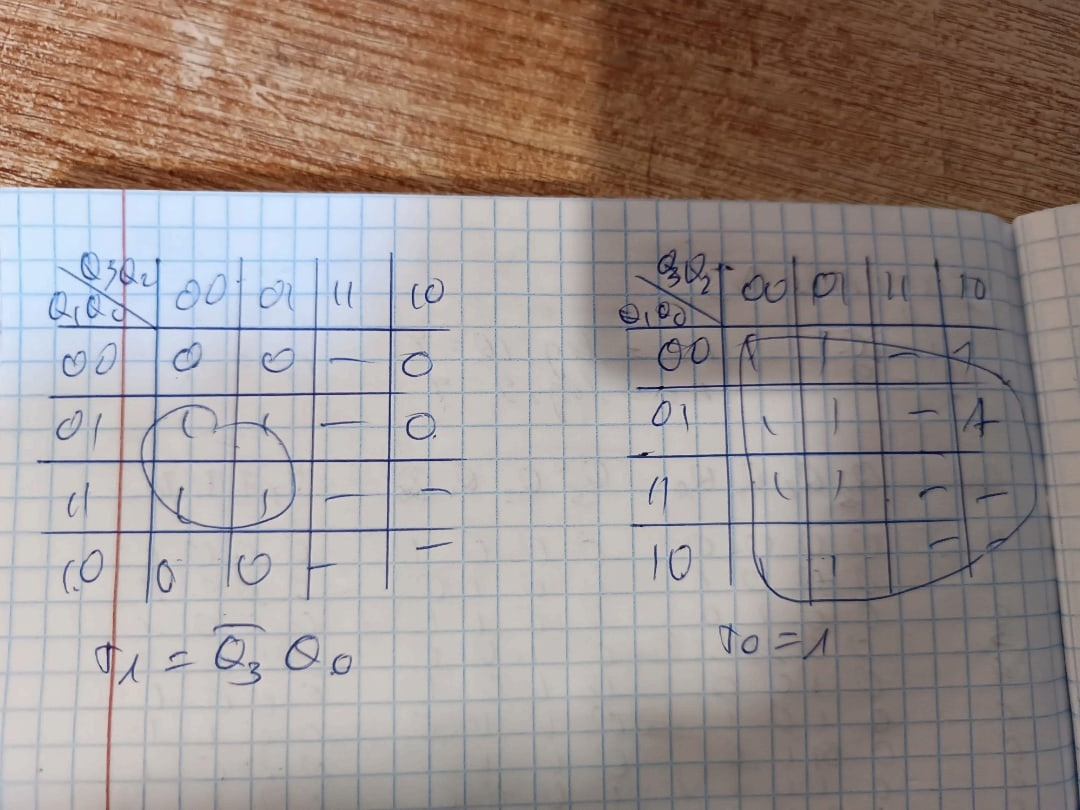 Q3Q2 00 01 11 10
Q1Q0
00 0 0 — 0
01 1 1 — 0
11 1 1 — —
10 0 0 — —
T1 = Q̅3 Q0
Q3Q2 00 01 11 10
Q1Q0
00 1 1 — 1
01 1 1 — 1
11 1 1 — —
10 1 1 — —
T0 = 1